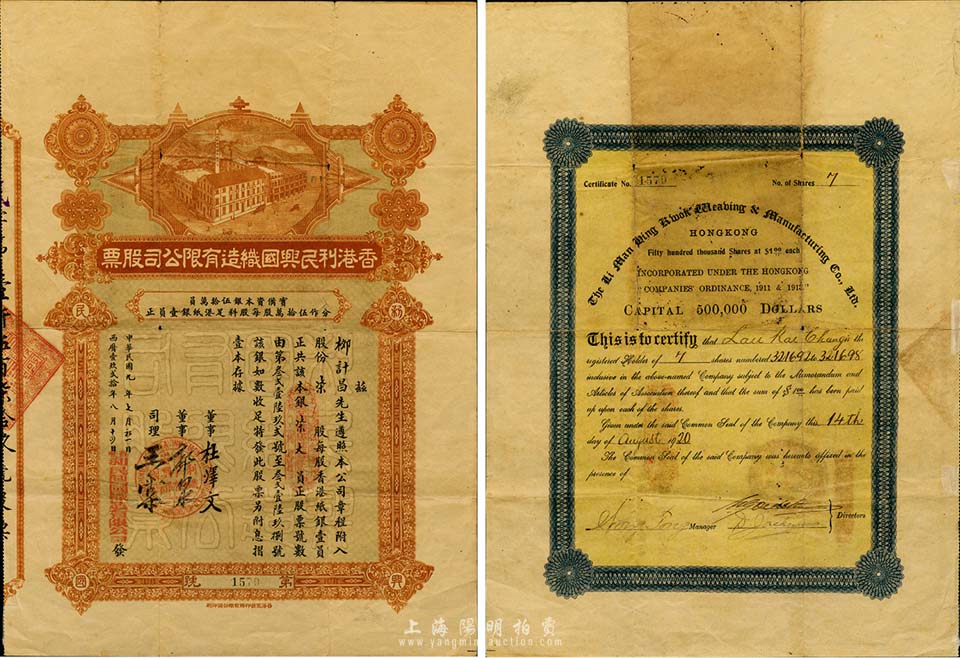 香港利民興國織造有限公司股票
實備資本銀伍拾萬員
分作伍拾萬股每股科足港紙銀壹員正
民
勸
茲
柳計昌先生遵照本公司章程附入
股份 柒 股每股香港紙銀壹員
正共該本銀 柒大 員正股票號數
由第叁弍壹陸玖弍號至叁弍壹陸玖捌號
該銀如數收足特發此股票另附息摺
壹本存據
董事 杜澤文
董事
司理
中華民國九年七月初一日
西曆壹玖弍拾年八月十四日
發
第 1579 號
國
興
Certificate No. 1579
No. of Shares 7
The Li Man Hing Kwok Weaving & Manufacturing Co., Ltd.
HONGKONG
Fifty hundred thousand Shares at $1.00 each
INCORPORATED UNDER THE HONGKONG
"COMPANIES' ORDINANCE, 1911 & 1913"
CAPITAL 500,000 DOLLARS
This is to certify that Lau Kai Chang is the
registered Holder of 7 shares numbered 321692 to 321698
inclusive in the above-named Company subject to the Memorandum and
Articles of Association thereof and that the sum of $1.00 has been paid
up upon each of the shares.
Given under the said Common Seal of the Company this 14th
day of August 1920
The Common Seal of the said Company was hereunto affixed in the
presence of
Manager
Directors
上海陽明拍賣
www.yangmingauction.com